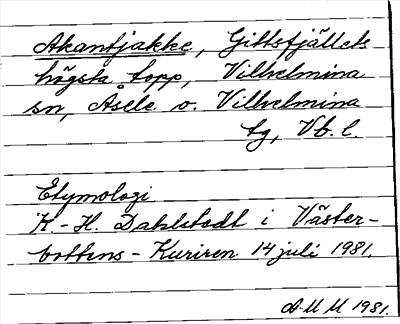 Akantjakke, Gittsfjällets
högsta topp, Vilhelmina
sn, Åsele o. Vilhelmina
tg, Vb. l.
Etymologi
K.-H. Dahlstedt i Väster-
bottens-Kuriren 14 juli 1981.
AMM 1981.